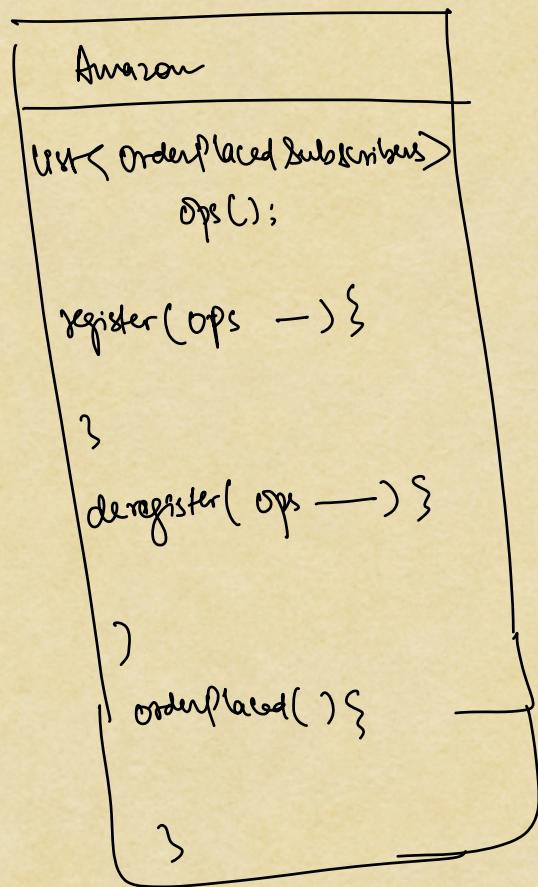 Amazon
List< OrderPlaced Subscribers>
Ops();
register( ops — ) {
}
deregister( ops — ) {
}
orderPlaced( ) {
}